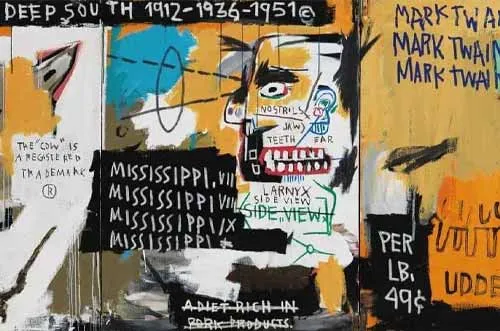 DEEP SOUTH 1912-1936-1951©
MARK TWA
MARK TWAI
MARK TWAI
NOSTRILS
JAW
TEETH
EAR
LARNYX
SIDE VIEW
SIDE VIEW
THE "COW" IS
A REGISTERED
TRADEMARK
®
MISSISSIPPI, VII
MISSISSIPPI VIII
MISSISSIPPI IX
MISSISSIPPI
PER
LB.
49¢
UDDE
A DIET RICH IN
PORK PRODUCTS.